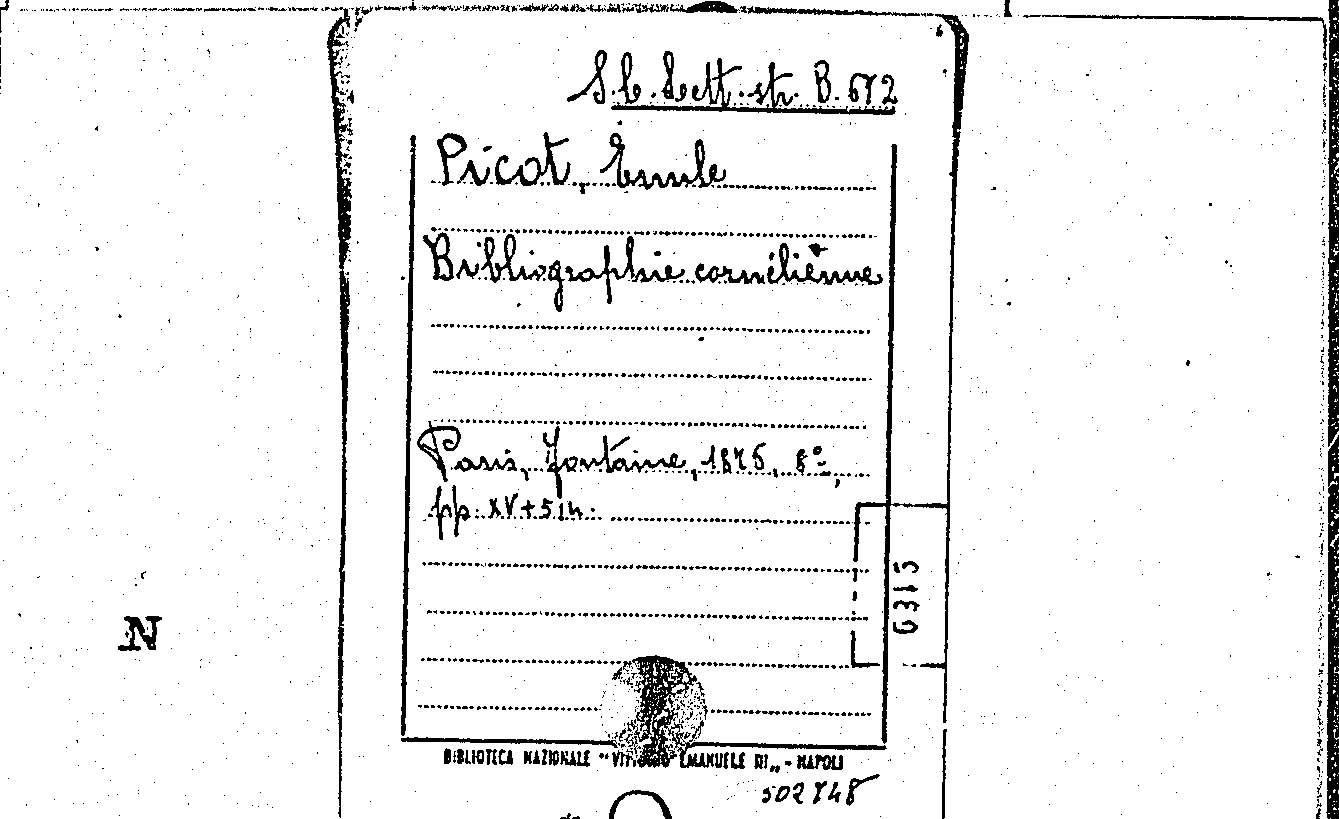 S.C. Lett. str. B. 672
Picot, Emile
Bibliographie cornélienne
Paris, Fontaine, 1875, 8º,
pp. XV+514.
G315
N
BIBLIOTECA NAZIONALE "VITTORIO EMANUELE III„ - NAPOLI
502748